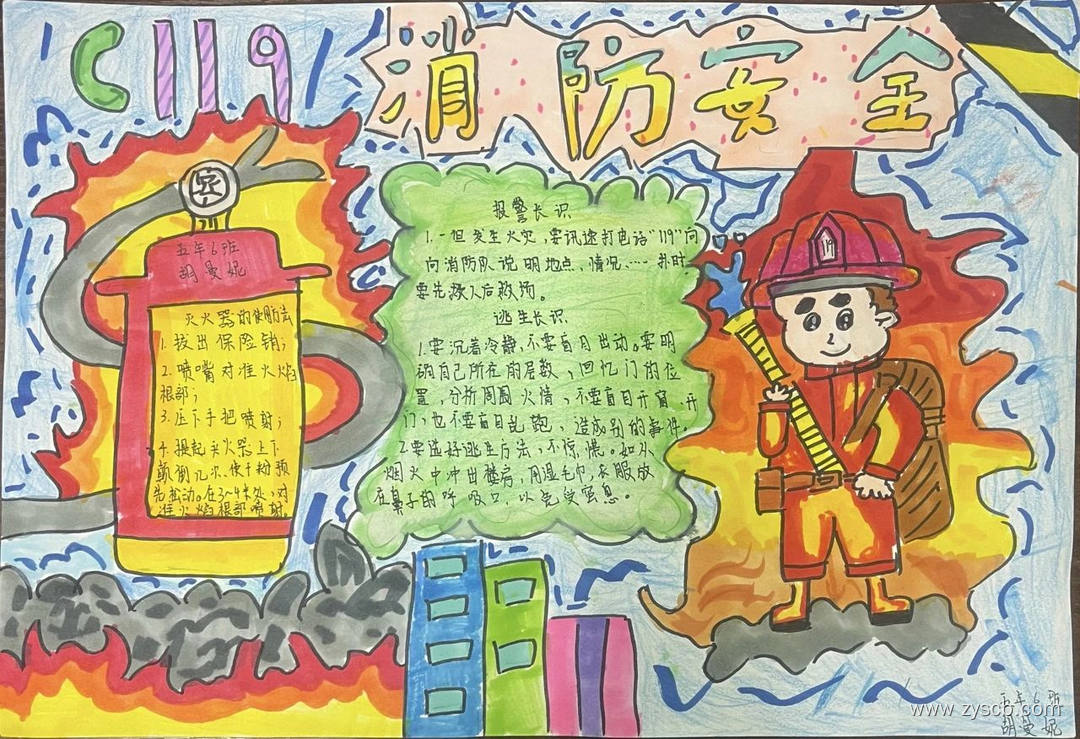 119
消防安全
安
五年6班
胡曼妮
灭火器的使用方法
1.拔出保险销;
2.喷嘴对准火焰
根部;
3.压下手把喷射;
4.提起灭火器上下
颠倒几次,使干粉预
先松动。在3~4米处,对
准火焰根部喷射.
报警长识
1.一但发生火灾,要讯速打电话“119”向
向消防队说明地点、情况、… 扑时
要先救人后救场。
逃生长识
1.要沉着冷静,不要盲目出动。要明
确自己所在的层数、回忆门的位
置,分析周围火情、不要盲目开窗、开
门,也不要盲目乱跑、造成别的事件.
2.要选好逃生方法,不惊慌。如从
烟火中冲出楼房,用湿毛巾,衣服放
在鼻子的呼吸口,以免受窒息。
五年6班
胡曼妮
www.zyscb.com